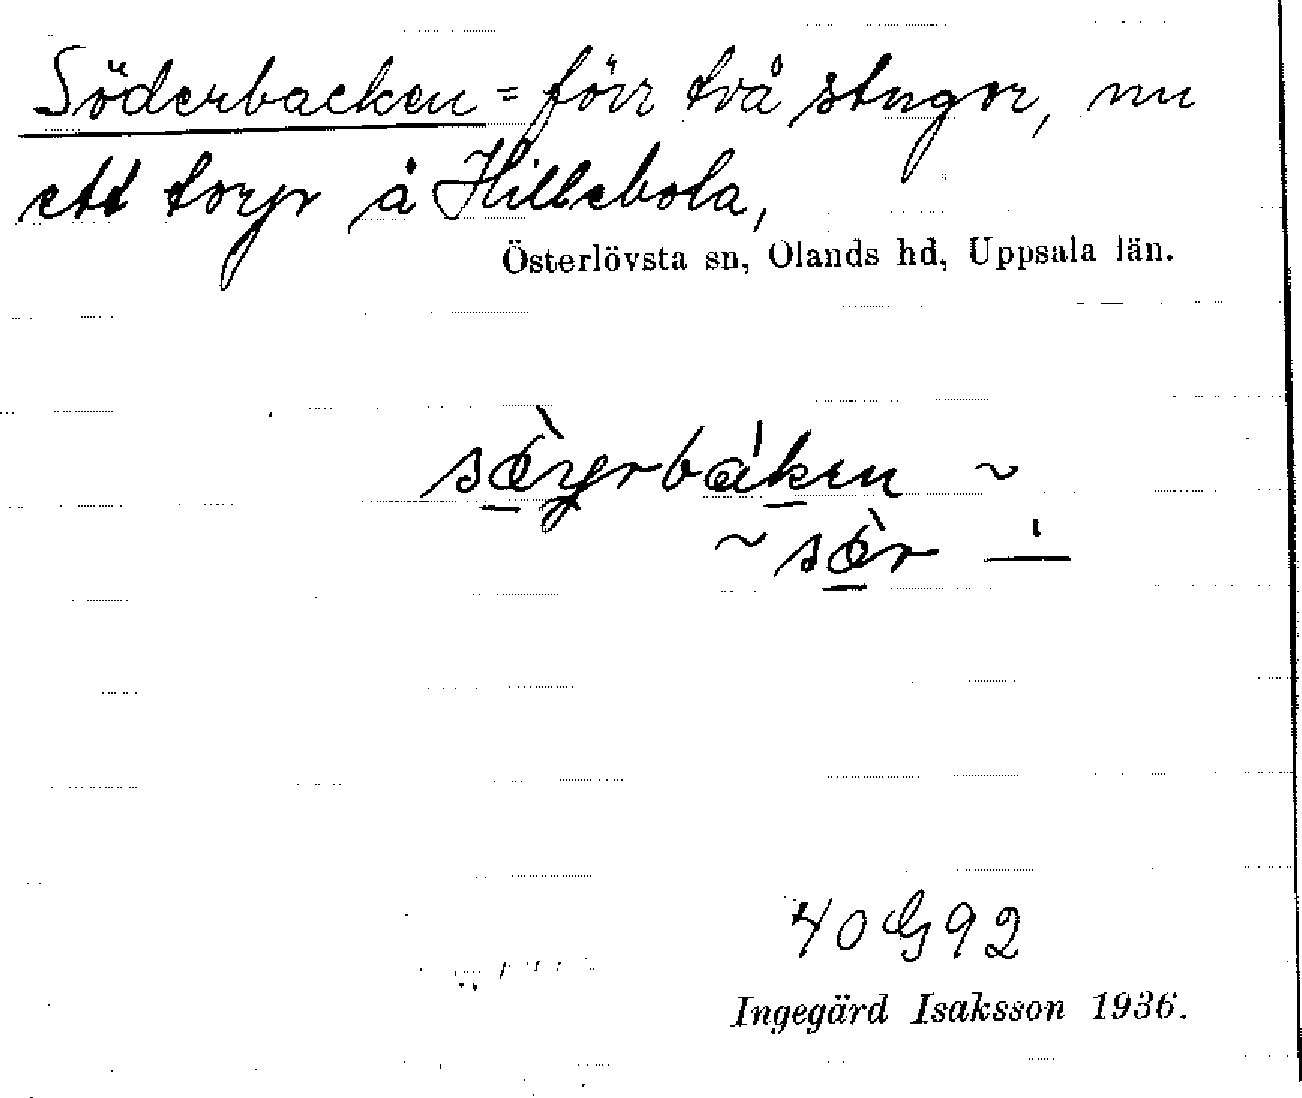 Söderbacken = förr två stugor, nu
ett torp å Hillebola,
Österlövsta sn, Olands hd, Uppsala län.
~ sør
40 G 92
Ingegärd Isaksson 1936.